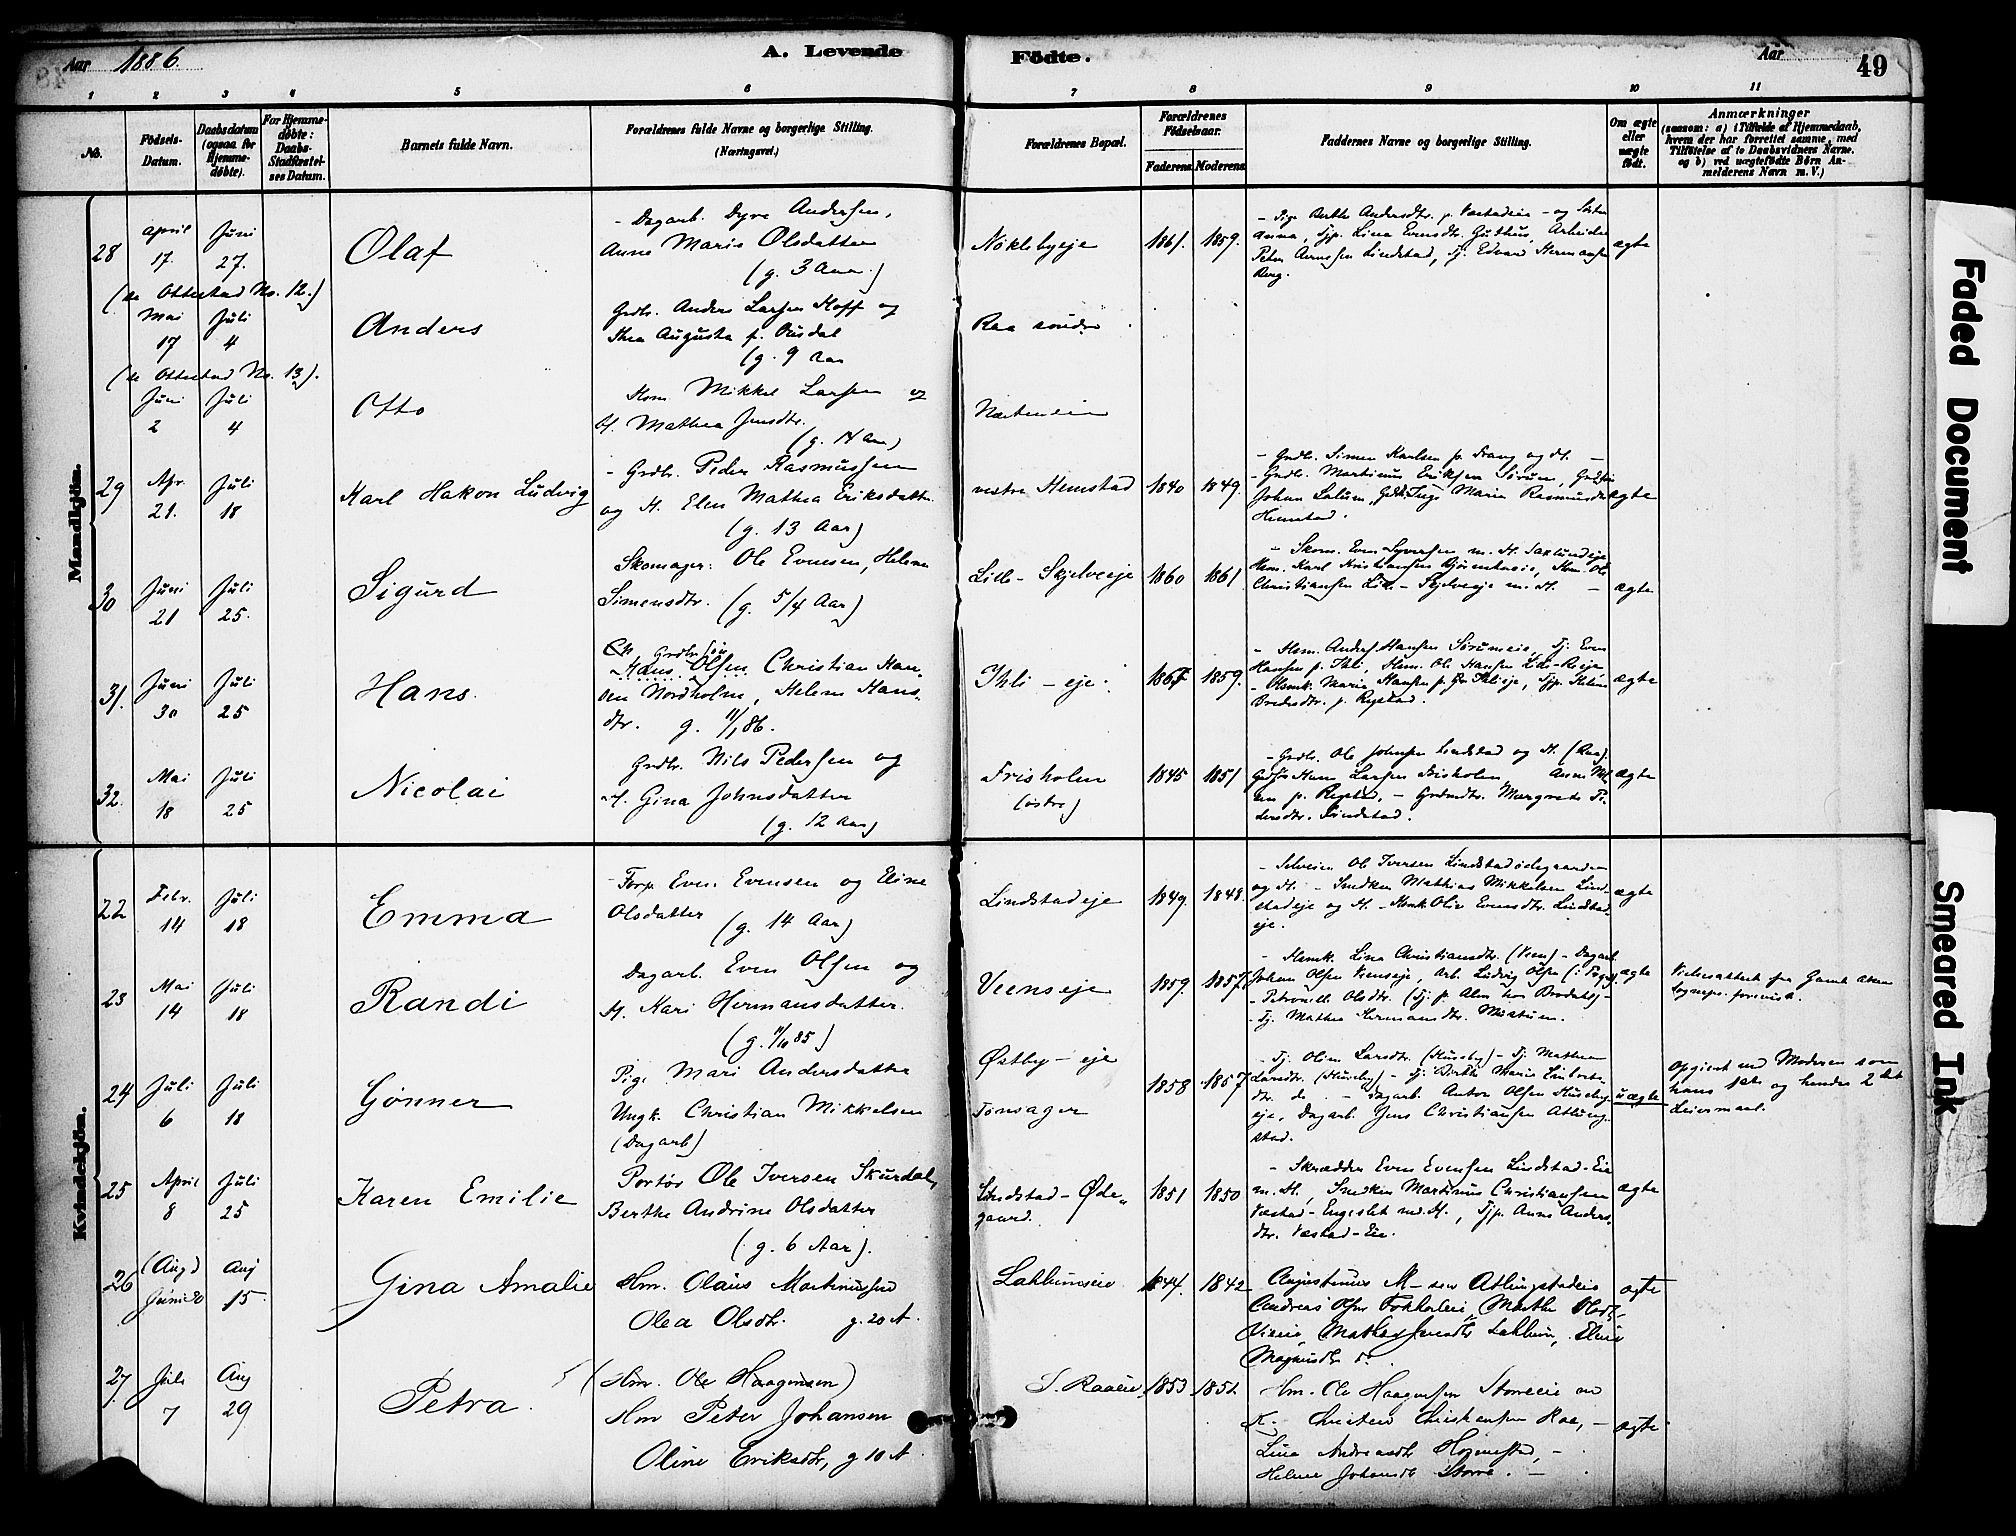 Aar 1886.
A. Levende
Födte.
Aar
49
1 2 3 4 5 6 7 8 9 10 11
No.
Födsels-Datum.
Daabsdatum (ogsaa for Hjemmedöbte).
For Hjemmedöbte: Daabs-Stadfæstelses Datum.
Barnets fulde Navn.
Forældrenes fulde Navne og borgerlige Stilling. (Næringsvei.)
Forældrenes Bopæl.
Forældrenes Födselsaar.
Faderens Moderens
Faddernes Navne og borgerlige Stilling.
Om ægte eller uægte födt.
Anmærkninger
(saasom: a) i Tilfælde af Hjemmedaab, hvem der har forrettet samme, med Tilföielse af to Daabsvidners Navne. og b) ved uægtefödte Börn Anmelderens Navn m. V.)
Mandkjön.
28 april 17. Juni 27. Olaf
- Dagarb. Dyre Andersen,
Anne Marie Olsdatter
(g. 3 Aar.)
Nöklebyeje 1861. 1859.
- Pige Berthe Andersdtr. p. Væstadeie - og Söster
Anna, Tjp. Lina Evensdtr. Guthus, Arbeider
Peter Arnesen Lindstad, Tj. Edvard Hermansen
Berg.
ægte
(se Ottestad No. 12.)
Mai 17 Juli 4 Anders
Grdbr. Anders Larsen Hoff og
Thea Augusta f. Ousdal
(g. 9 Aar
Raa söndre
(se Ottestad No. 13).
Juni 2 Juli 4 Otto
Hsm. Mikkel Larsen og
H. Mathea Jensdtr.
(g. 14 Aar)
29 Apr. 21. Juli 18 Karl Hakon Ludvig
- Grdbr. Peder Rasmussen
og H. Elen Mathea Eriksdatter.
(g. 13 Aar)
vestre Hemstad 1840 1849.
- Grdbr. Simen Karlsen p. Frang og H. -
- Grdbr. Martinus Eriksen Sörum,
Johan Lalum, Inge Marie Rasmusdtr
Hemstad.
ægte
30 Juni 21 Juli 25. Sigurd
Skomager: Ole Evensen, Helene
Simensdtr. (g. 5/4 Aar)
Lille-Skjelveeje 1860 1861
- Skom. Even Syversen m. H. Saxlundeje
Hsm. Karl Kristiansen Bjørnhuseie, Hsm. Ole
Christiansen Lille-Skjelveeje m. H. -
ægte
31. Juni 30 Juli 25 Hans.
Grdbr.sön
Hans Olsen Christian Han-
sen Nordholm, Helene Hans-
dtr. g. 11/1 86.
Ihli-eje. 1867 1859.
- Hsm. Anders Hansen Sörumeie, Tj. Even
Hansen p. Ihli, Hsm. Ole Hansen Lille-Raeje
- Marie Hansen p. Ihlieje, Tjp. Helene
Bredesdtr. p. Rogstad.
ægte
32. Mai 18 Juli 25 Nicolai
Grdbr. Nils Pedersen og
H. Gina Johnsdatter
(g. 12 Aar)
Frisholm
(östre)
1845 1851
- Grdbr. Ole Johnsen Lindstad og H. (Raa).
Larsen Frisholm, Anne
p. Rogstad, - Grdmdtr. Margrete Pe-
dersdtr. Lindstad.
ægte
Kvindekjön.
22 Febr. 14 Juli 18 Emma
- Forp. Even Evensen og Eline
Olsdatter (g. 14 Aar)
Lindstadeje 1849. 1848.
- Selveier Ole Iversen Lindstadödegaarden
og H. - Snedker Mathias Mikkelsen Lind-
stadeje og H. - Hsmk. Olia Evensdtr. Lindstad-
eje.
ægte
23 Mai 14 Juli 18 Randi
Dagarb. Even Olsen og
H. Kari Hermansdatter.
(g. 11/10 85)
Veenseje 1859. 1857.
- Hsmk. Lina Christiansdtr. (Veen) - Dagarb.
Johan Olsen Veenseje, Arb. Ludvig Olsen
- Petronelle Olsdtr. (Tj. p. Alm hos Brodahl) -
- Tj. Mathea Hermansdtr. Mustuen.
ægte
Vielsesattest fra Gamle Akers
Sognepr. forevist.
24 Juli 6 Juli 18 Gönner
Pige Mari Andersdatter
Ungk. Christian Mikkelsen
(Dagarb)
Østby-eje
Tønsager
1858 1857
- Tj. Oline Larsdtr. (Huseby) - Tj. Mathea
Larsdtr. (Huseby) - Tj. Berthe Marie Embrets-
dtr. do. - Dagarb. Anton Olsen Huseby-
eje, Dagarb. Jens Christiansen Atlung-
stad.
uægte
Opgivet ved Moderen som
hans 1ste og hendes 2det
Leiermaal.
25 April 8 Juli 25 Karen Emilie
Portör Ole Iversen Skurdal,
Berthe Andrine Olsdatter
(. g. 6 Aar).
Lindstad-Øde-
gaard.
1851 1850
- Skrædder Even Evensen Lindstad-Eie
m. H., Snedker Martinus Christiansen
Væstad-Engeslet m. H., Tjp. Anne Anders-
dtr. Væstad-Eie.
ægte
26 (Aug) Juni 20 Aug 15. Gina Amalie
Hm. Olaus Martinussen
Olea Olsdtr. g. 20 A.
Lahlumseie 1844. 1842
Augustinus M-sen Atlungstadeie
Andreas Olsen Marthe Olsdt.
Mathea Jensdtr Lahlum, Eline
Magnusdtr
ægte
27 Juli 7 Aug 29 Petra.
(Hm. Ole Haagensen)
Hm Peter Johansen
Oline Eriksdtr, g 10 A
S. Raaeie. 1853 1851.
Hm. Ole Haagensen Storreeie m
K. - Christian Christiansen Raa, -
Lina Andreasdtr -
Helene Johansdt Storre. -
ægte
Faded Document
Smeared Ink